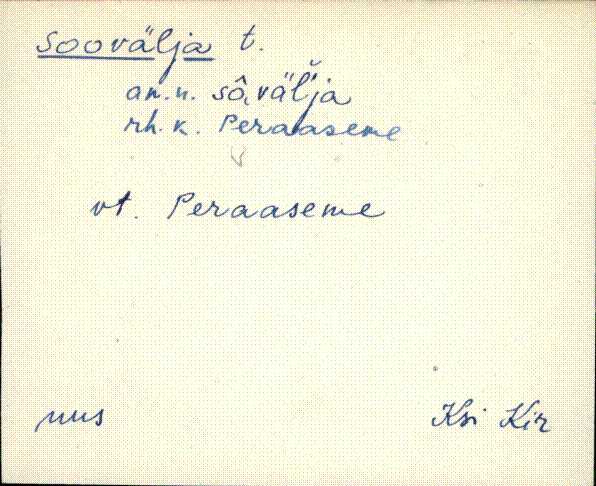 Soovälja t.
am.n. sô,väl̆ja
rh.k. Peraaseme
vt. Peraaseme
uus
Ksi Kir